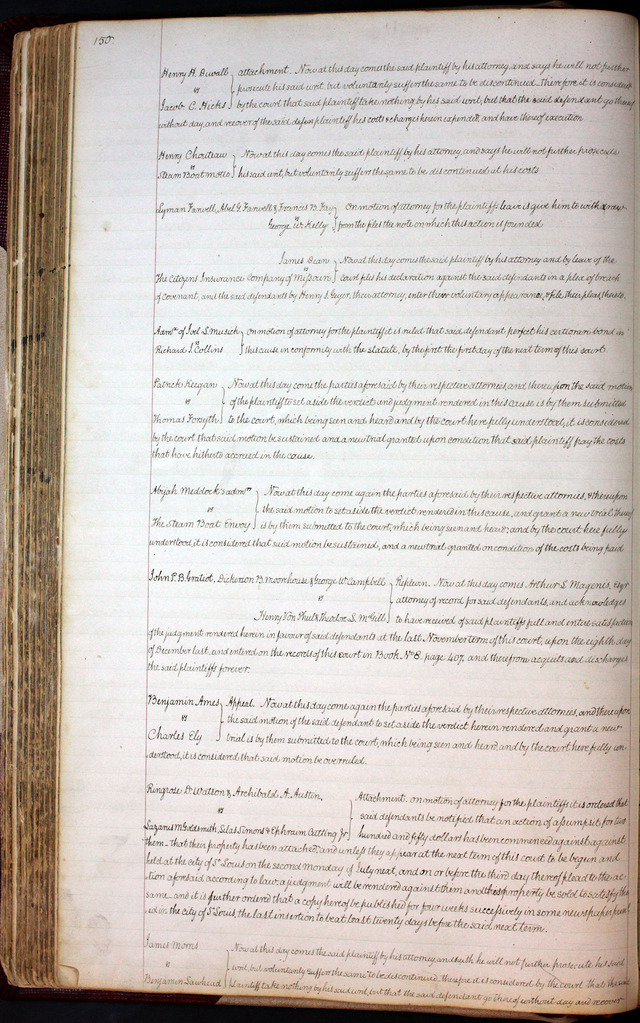 150
Henry H. Duvall } attachment. Now at this day comes the said plaintiff by his attorney, and says he will not further
vs } prosecute his said writ, but voluntarily suffers the same to be discontinued. Therefore it is considered
Jacob C. Hicks } by the court that said plaintiff take nothing by his said writ, but that the said defendant go thereof
without day, and recover of the said plaintiff his costs & charges herein expended, and have thereof execution
Henry Chouteau } Now at this day comes the said plaintiff by his attorney, and says he will not further prosecute
vs
Steam Boat } his said writ, but voluntarily suffers the same to be discontinued at his costs.
Lyman Farwell, Abel G. Farwell & Francis B. Fay } On motion of attorney for the plaintiffs leave is give him to withdraw
vs
George W. Kelly } from the files the note on which this action is founded
James Dean } Now at this day comes the said plaintiff by his attorney and by leave of the
vs
The Citizens Insurance Company of Missouri } court files his declaration against the said defendants in a plea of breach
of covenant, and the said defendants by Henry S. Geyer, their attorney, enter their voluntary appearance, & file their pleas thereto.
Admr. of Joel S. Musick } on motion of attorney for the plaintiff it is ruled that said defendant perfect his certiorari bond in
vs
Richard J. Collins } this cause in conformity with the statute, by the first the first day of the next term of this court.
Patrick Keegan } Now at this day come the parties aforesaid by their respective attornies, and thereupon the said motion
vs } of the plaintiff to set aside the verdict and judgment rendered in this cause is by them submitted
Thomas Forsyth } to the court, which being seen and heard and by the court here fully understood, it is considered
by the court that said motion be sustained and a new trial granted upon condition that said plaintiff pay the costs
that have hitherto accrued in the cause.
Abijah Meddock's admr } Now at this day come again the parties aforesaid by their respective attornies, & thereupon
vs } the said motion to set aside the verdict rendered in this cause, and grant a new trial,
The Steam Boat Envoy } is by them submitted to the court, which being seen and heard; and by the court here fully
understood, it is considered that said motion be sustained, and a new trial granted on condition of the costs being paid
John P. B. Gratiot, Dickerson B. Moorhouse & George W. Campbell } Replevin. Now at this day comes Arthur L. Magenis, Esqr
vs } attorney of record for said defendants, and acknowledges
Henry Von Phul & Theodore L. McGill } to have received of said plaintiffs full and entire satisfaction
of the judgment rendered herein in favour of said defendants at the last November term of this court, upon the eighth day
of December last, and entered on the records of this court in Book No 8. page 407, and therefrom acquits and discharges
the said plaintiffs forever.
Benjamin Ames } Appeal. Now at this day come again the parties aforesaid by their respective attornies, and thereupon
vs } the said motion of the said defendant to set aside the verdict herein rendered and grant a new
Charles Ely } trial is by them submitted to the court, which being seen and heard, and by the court here fully un-
derstood, it is considered that said motion be overruled.
Ringrose D. Watson & Archibald A. Austin, } Attachment. on motion of attorney for the plaintiffs it is ordered that
vs } said defendants be notified that an action of assumpsit for two
Lazarus McGoldsmith, Silas Simons & Ephraim Cutting Jr. } hundred and fifty dollars has been commenced against against
them - that their property has been attached, and unless they appear at the next term of this court to be begun and
held at the city of St Louis on the second monday of July next, and on or before the third day thereof plead to the ac-
tion aforesaid according to law, a judgment will be rendered against them and their property be sold to satisfy the
same - and it is further ordered that a copy hereof be published for four weeks successively in some newspaper print-
ed in the city of St Louis, the last insertion to be at least twenty days before the said next term.
James } Now at this day comes the said plaintiff by his attorney, and saith he will not further prosecute his said
vs } writ, but voluntarily suffers the same to be discontinued, therefore it is considered by the court that the said
Benjamin Sawhead } plaintiff take nothing by his said writ, but that the said defendant go thereof without day and recover